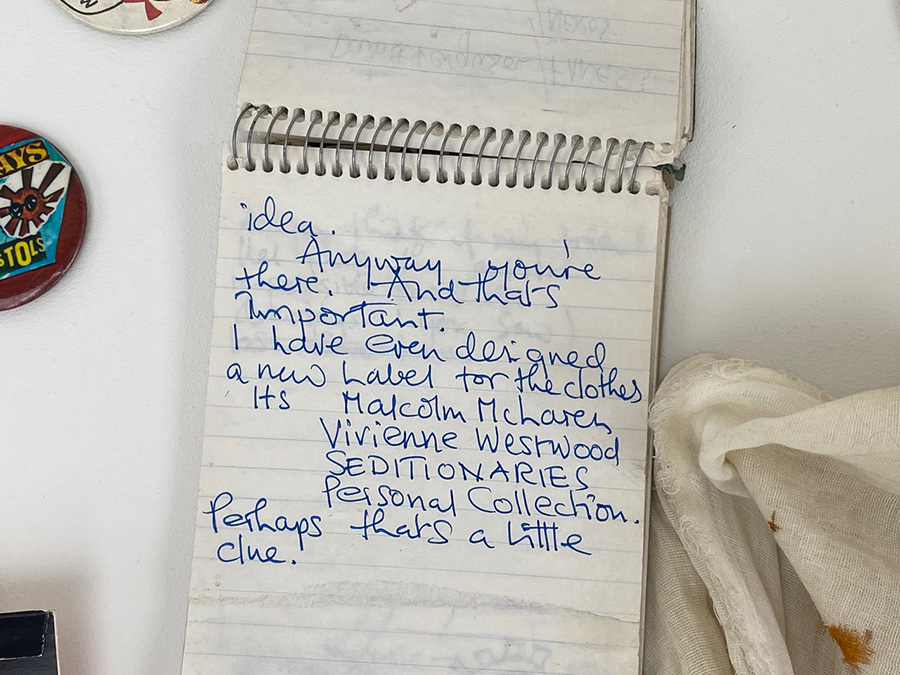 AYS
STOLS
idea.
Anyway you're
there. And that's
Important.
I have even designed
a new Label for the clothes
Its Malcolm McLaren
Vivienne Westwood
SEDITIONARIES
Personal Collection.
Perhaps that's a little
clue.